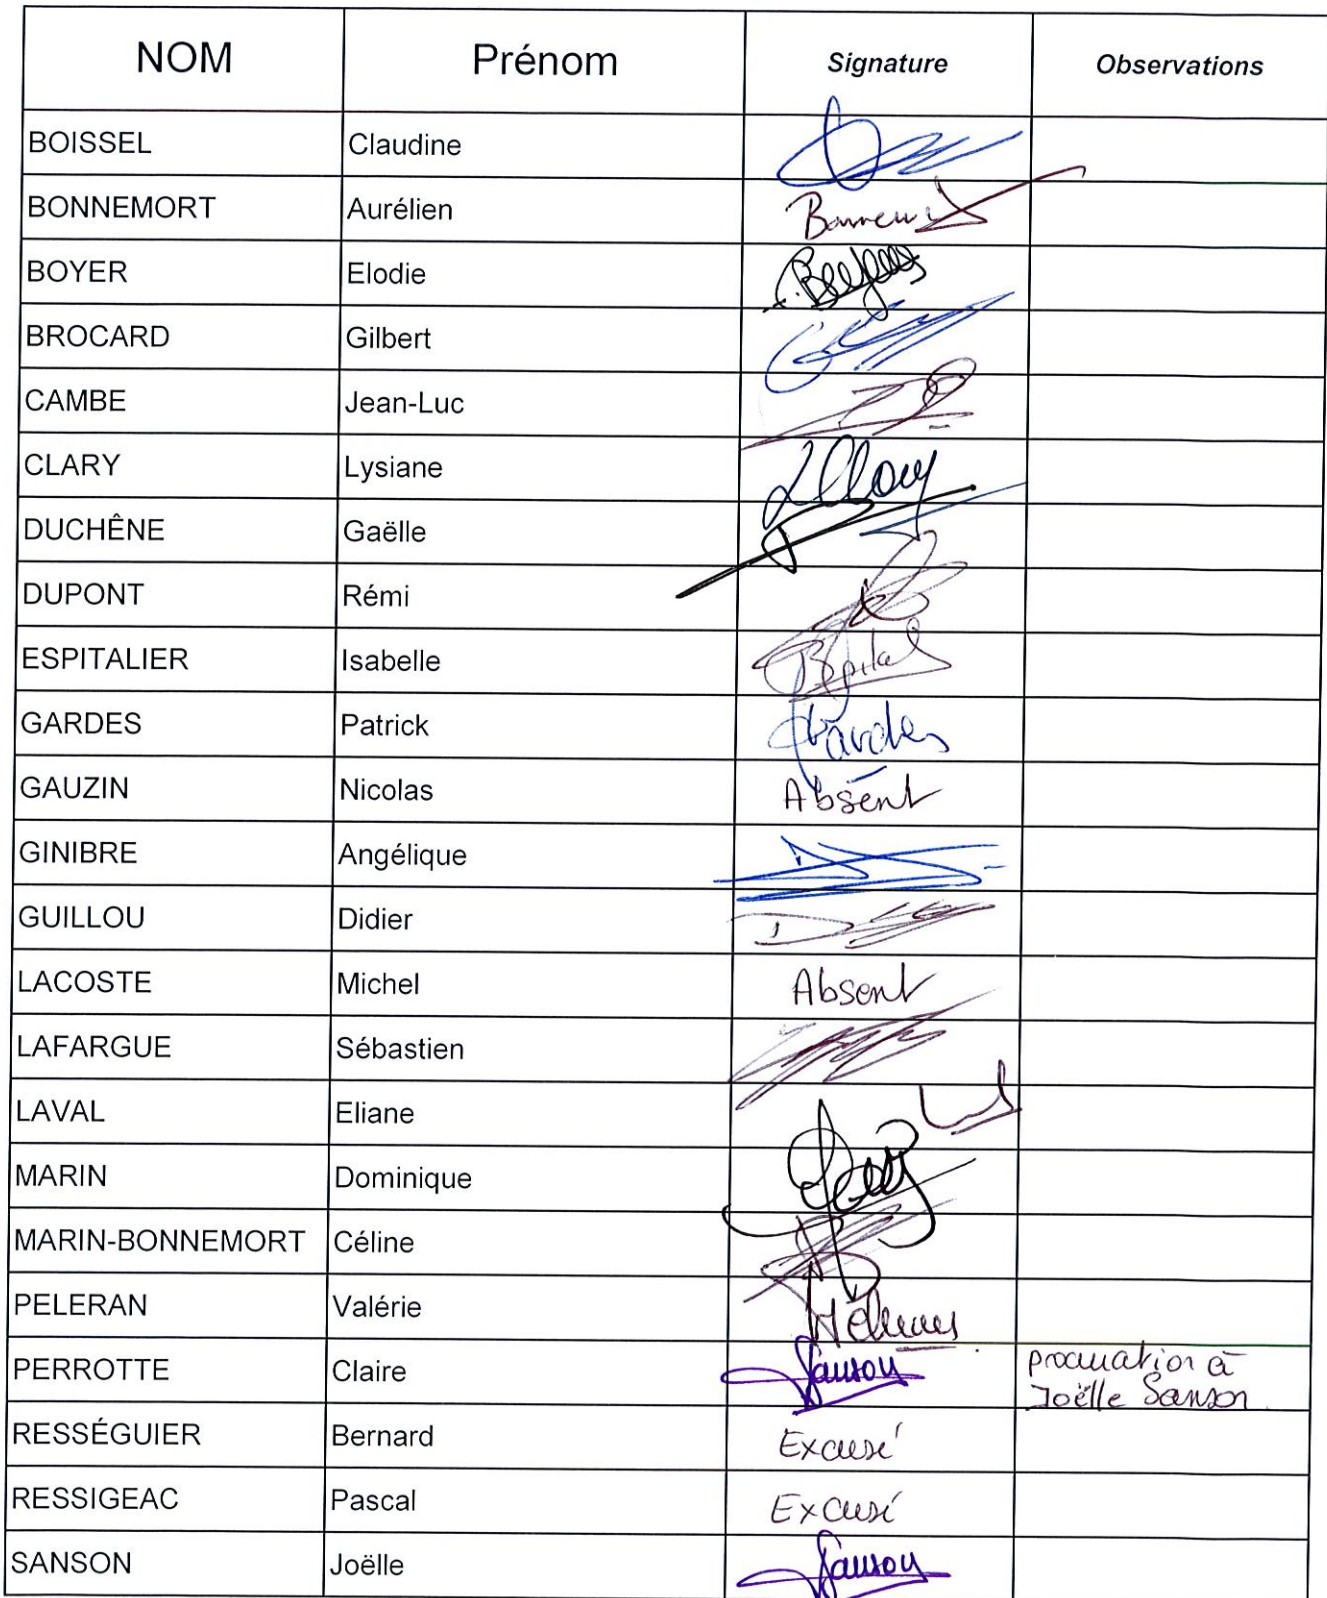 NOM Prénom Signature Observations
BOISSEL Claudine
BONNEMORT Aurélien
BOYER Elodie
BROCARD Gilbert
CAMBE Jean-Luc
CLARY Lysiane
DUCHÊNE Gaëlle
DUPONT Rémi
ESPITALIER Isabelle
GARDES Patrick Gardes
GAUZIN Nicolas Absent
GINIBRE Angélique
GUILLOU Didier
LACOSTE Michel Absent
LAFARGUE Sébastien
LAVAL Eliane
MARIN Dominique
MARIN-BONNEMORT Céline
PELERAN Valérie
PERROTTE Claire Sanson procuration à
Joëlle Sanson
RESSÉGUIER Bernard Excusé
RESSIGEAC Pascal Excusé
SANSON Joëlle Sanson